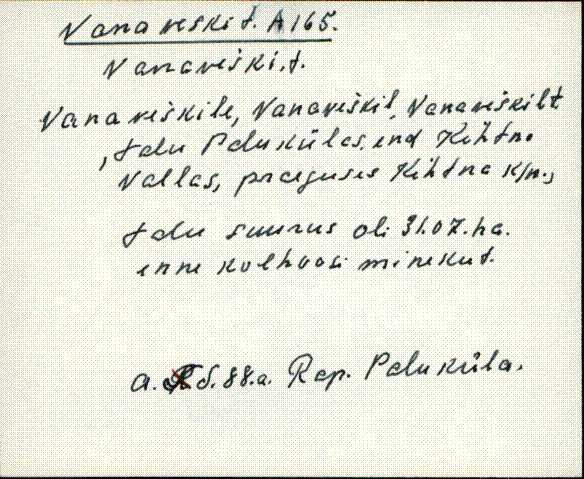 Vanaveski t. A 165.
Vanaveski, t.
Vanaveskile, Vanaveskil, Vanaveskilt
, talu Palukülas, end Kehtna
vallas, praeguses Kehtna k/n.,
talu suurus oli 31.07. ha.
enne kolhoosi minekut.
a. 88.a. Rap. Paluküla.